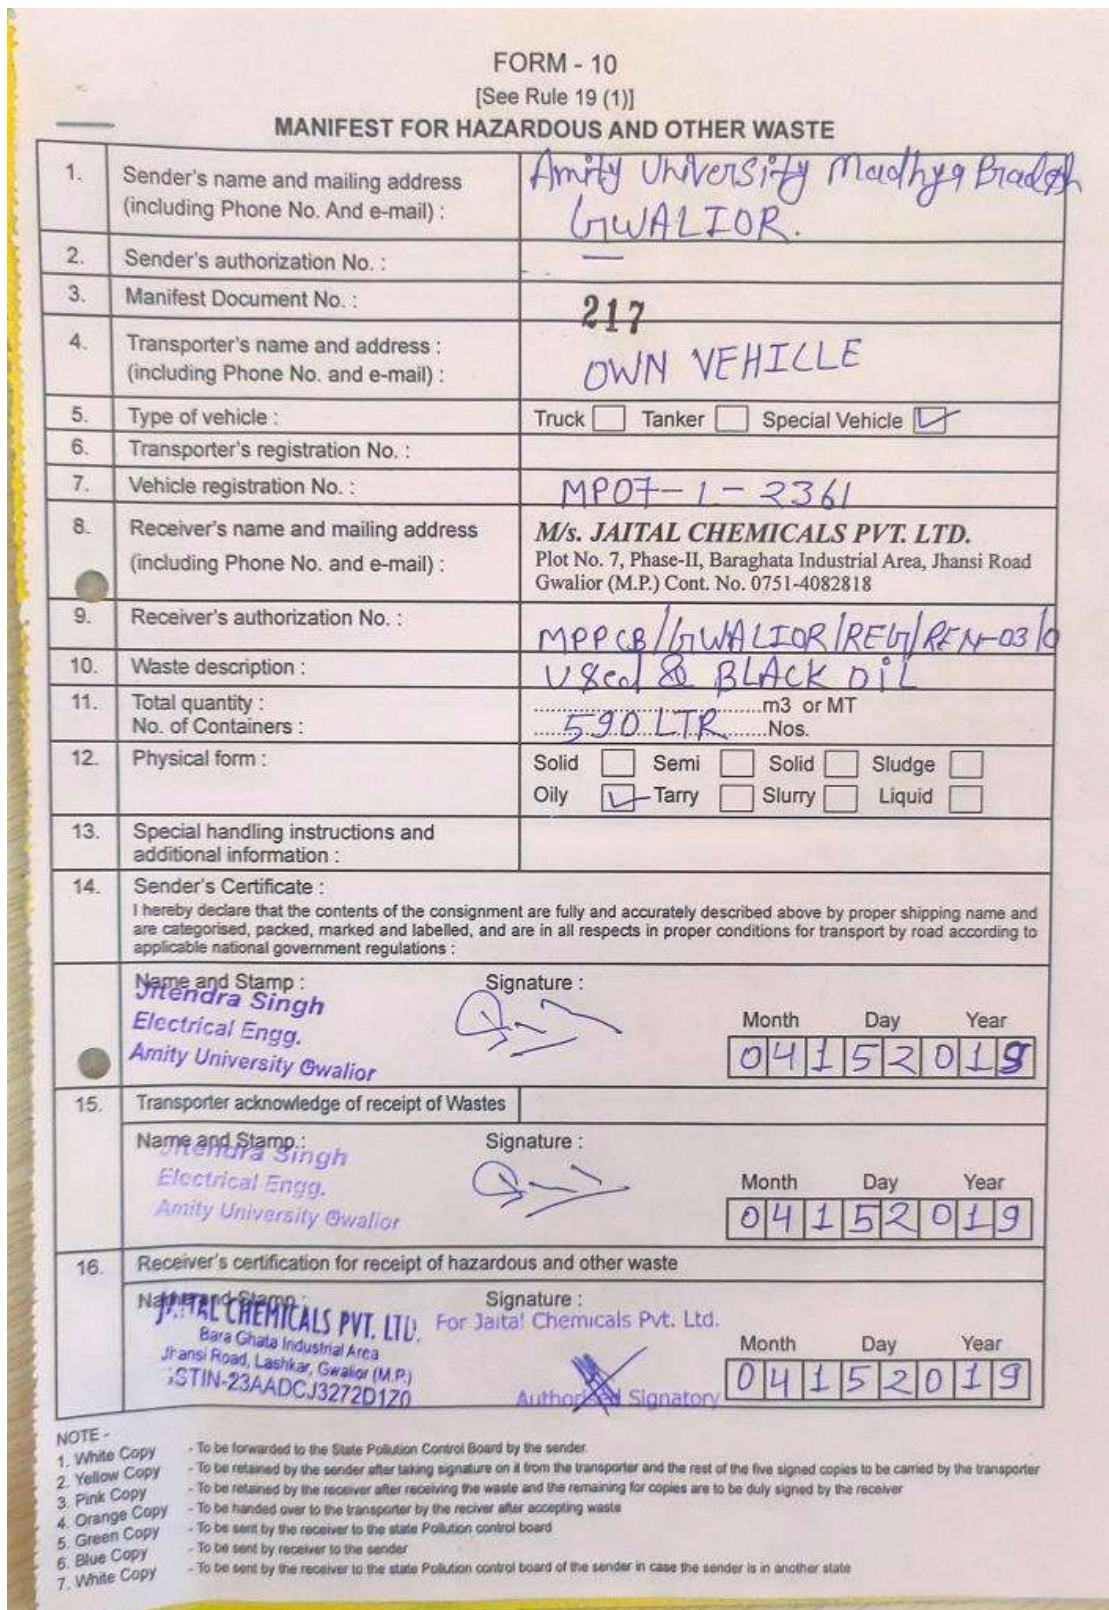 FORM - 10
[See Rule 19 (1)]
MANIFEST FOR HAZARDOUS AND OTHER WASTE
1. Sender's name and mailing address Amity University Madhya Pradesh
(including Phone No. And e-mail) : GWALIOR.
2. Sender's authorization No. : —
3. Manifest Document No. : 217
4. Transporter's name and address :
(including Phone No. and e-mail) : OWN VEHILLE
5. Type of vehicle : Truck Tanker Special Vehicle
6. Transporter's registration No. :
7. Vehicle registration No. : MP07-1-2361
8. Receiver's name and mailing address M/s. JAITAL CHEMICALS PVT. LTD.
(including Phone No. and e-mail) : Plot No. 7, Phase-II, Baraghata Industrial Area, Jhansi Road
Gwalior (M.P.) Cont. No. 0751-4082818
9. Receiver's authorization No. : MPPCB/GWALIOR/REG/REN-03/0
10. Waste description : Used & BLACK OiL
11. Total quantity : ........................m3 or MT
No. of Containers : ......590 LTR......Nos.
12. Physical form : Solid Semi Solid Sludge
Oily Tarry Slurry Liquid
13. Special handling instructions and
additional information :
14. Sender's Certificate :
I hereby declare that the contents of the consignment are fully and accurately described above by proper shipping name and
are categorised, packed, marked and labelled, and are in all respects in proper conditions for transport by road according to
applicable national government regulations :
Name and Stamp : Signature :
Jitendra Singh
Electrical Engg. Month Day Year
Amity University Gwalior 04152019
15. Transporter acknowledge of receipt of Wastes
Name and Stamp.: Signature :
Jitendra Singh
Electrical Engg. Month Day Year
Amity University Gwalior 04152019
16. Receiver's certification for receipt of hazardous and other waste
Name and Stamp : Signature :
JAITAL CHEMICALS PVT. LTD. For Jaital Chemicals Pvt. Ltd.
Bara Ghata Industrial Area Month Day Year
Jhansi Road, Lashkar, Gwalior (M.P.) 04152019
GSTIN-23AADCJ3272D1Z0 Authorised Signatory
NOTE -
1. White Copy - To be forwarded to the State Pollution Control Board by the sender.
2. Yellow Copy - To be retained by the sender after taking signature on it from the transporter and the rest of the five signed copies to be carried by the transporter
3. Pink Copy - To be retained by the receiver after receiving the waste and the remaining for copies are to be duly signed by the receiver
4. Orange Copy - To be handed over to the transporter by the reciver after accepting waste
5. Green Copy - To be sent by the receiver to the state Pollution control board
6. Blue Copy - To be sent by receiver to the sender
7. White Copy - To be sent by the receiver to the state Pollution control board of the sender in case the sender is in another state